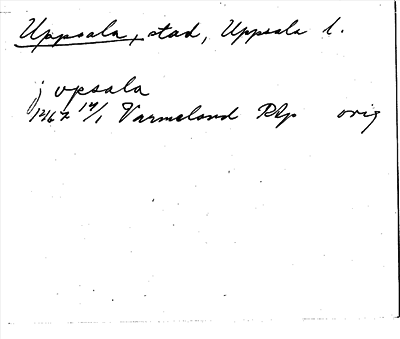 Uppsala, stad, Uppsala l.
j vpsala
1267 17/1 Varmelond Rp orig